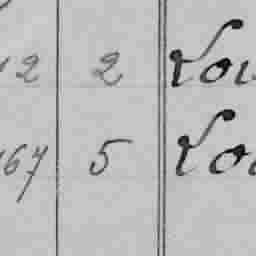 12 2 Lou
167 5 Lou